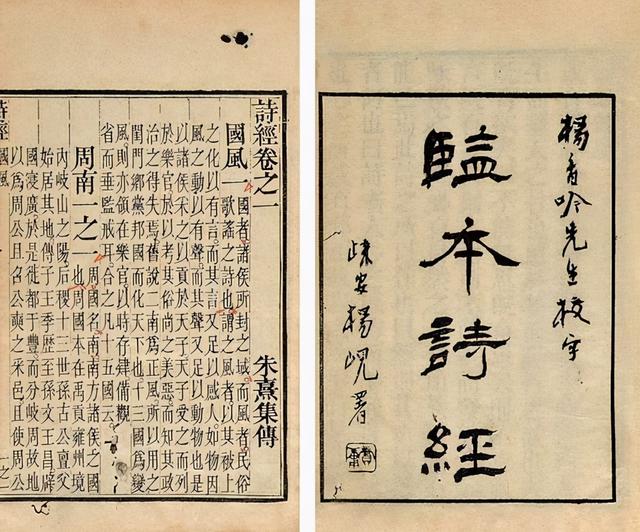 楊香吟先生校字
監本詩經
楊峴署
詩經卷之一
朱熹集傳
國風一
國者諸侯所封之域而風者民俗
歌謠之詩也謂之風者以其被上
之化以有言而其言又足以感人如物因
風之動以有聲而其聲又足以動物也是
以諸侯采之以貢於天子天子受之而列
於樂官於以考其俗尚之美惡而知其政
治之得失焉舊說二南為正風所以用之
閨門鄉黨邦國而化天下也十三國為變
風則亦領在樂官以時存肄備觀
省而垂監戒耳合之凡十五國云
周南一之一
周國名南南方諸侯之國
也周國本在禹貢雍州境
內岐山之陽后稷十三世孫古公亶父
始居其地傳子王季歷至孫文王昌辟
國寖廣於是徙都于豐而分岐周故地
以爲周公旦召公奭之采邑且使周公
詩經
國風